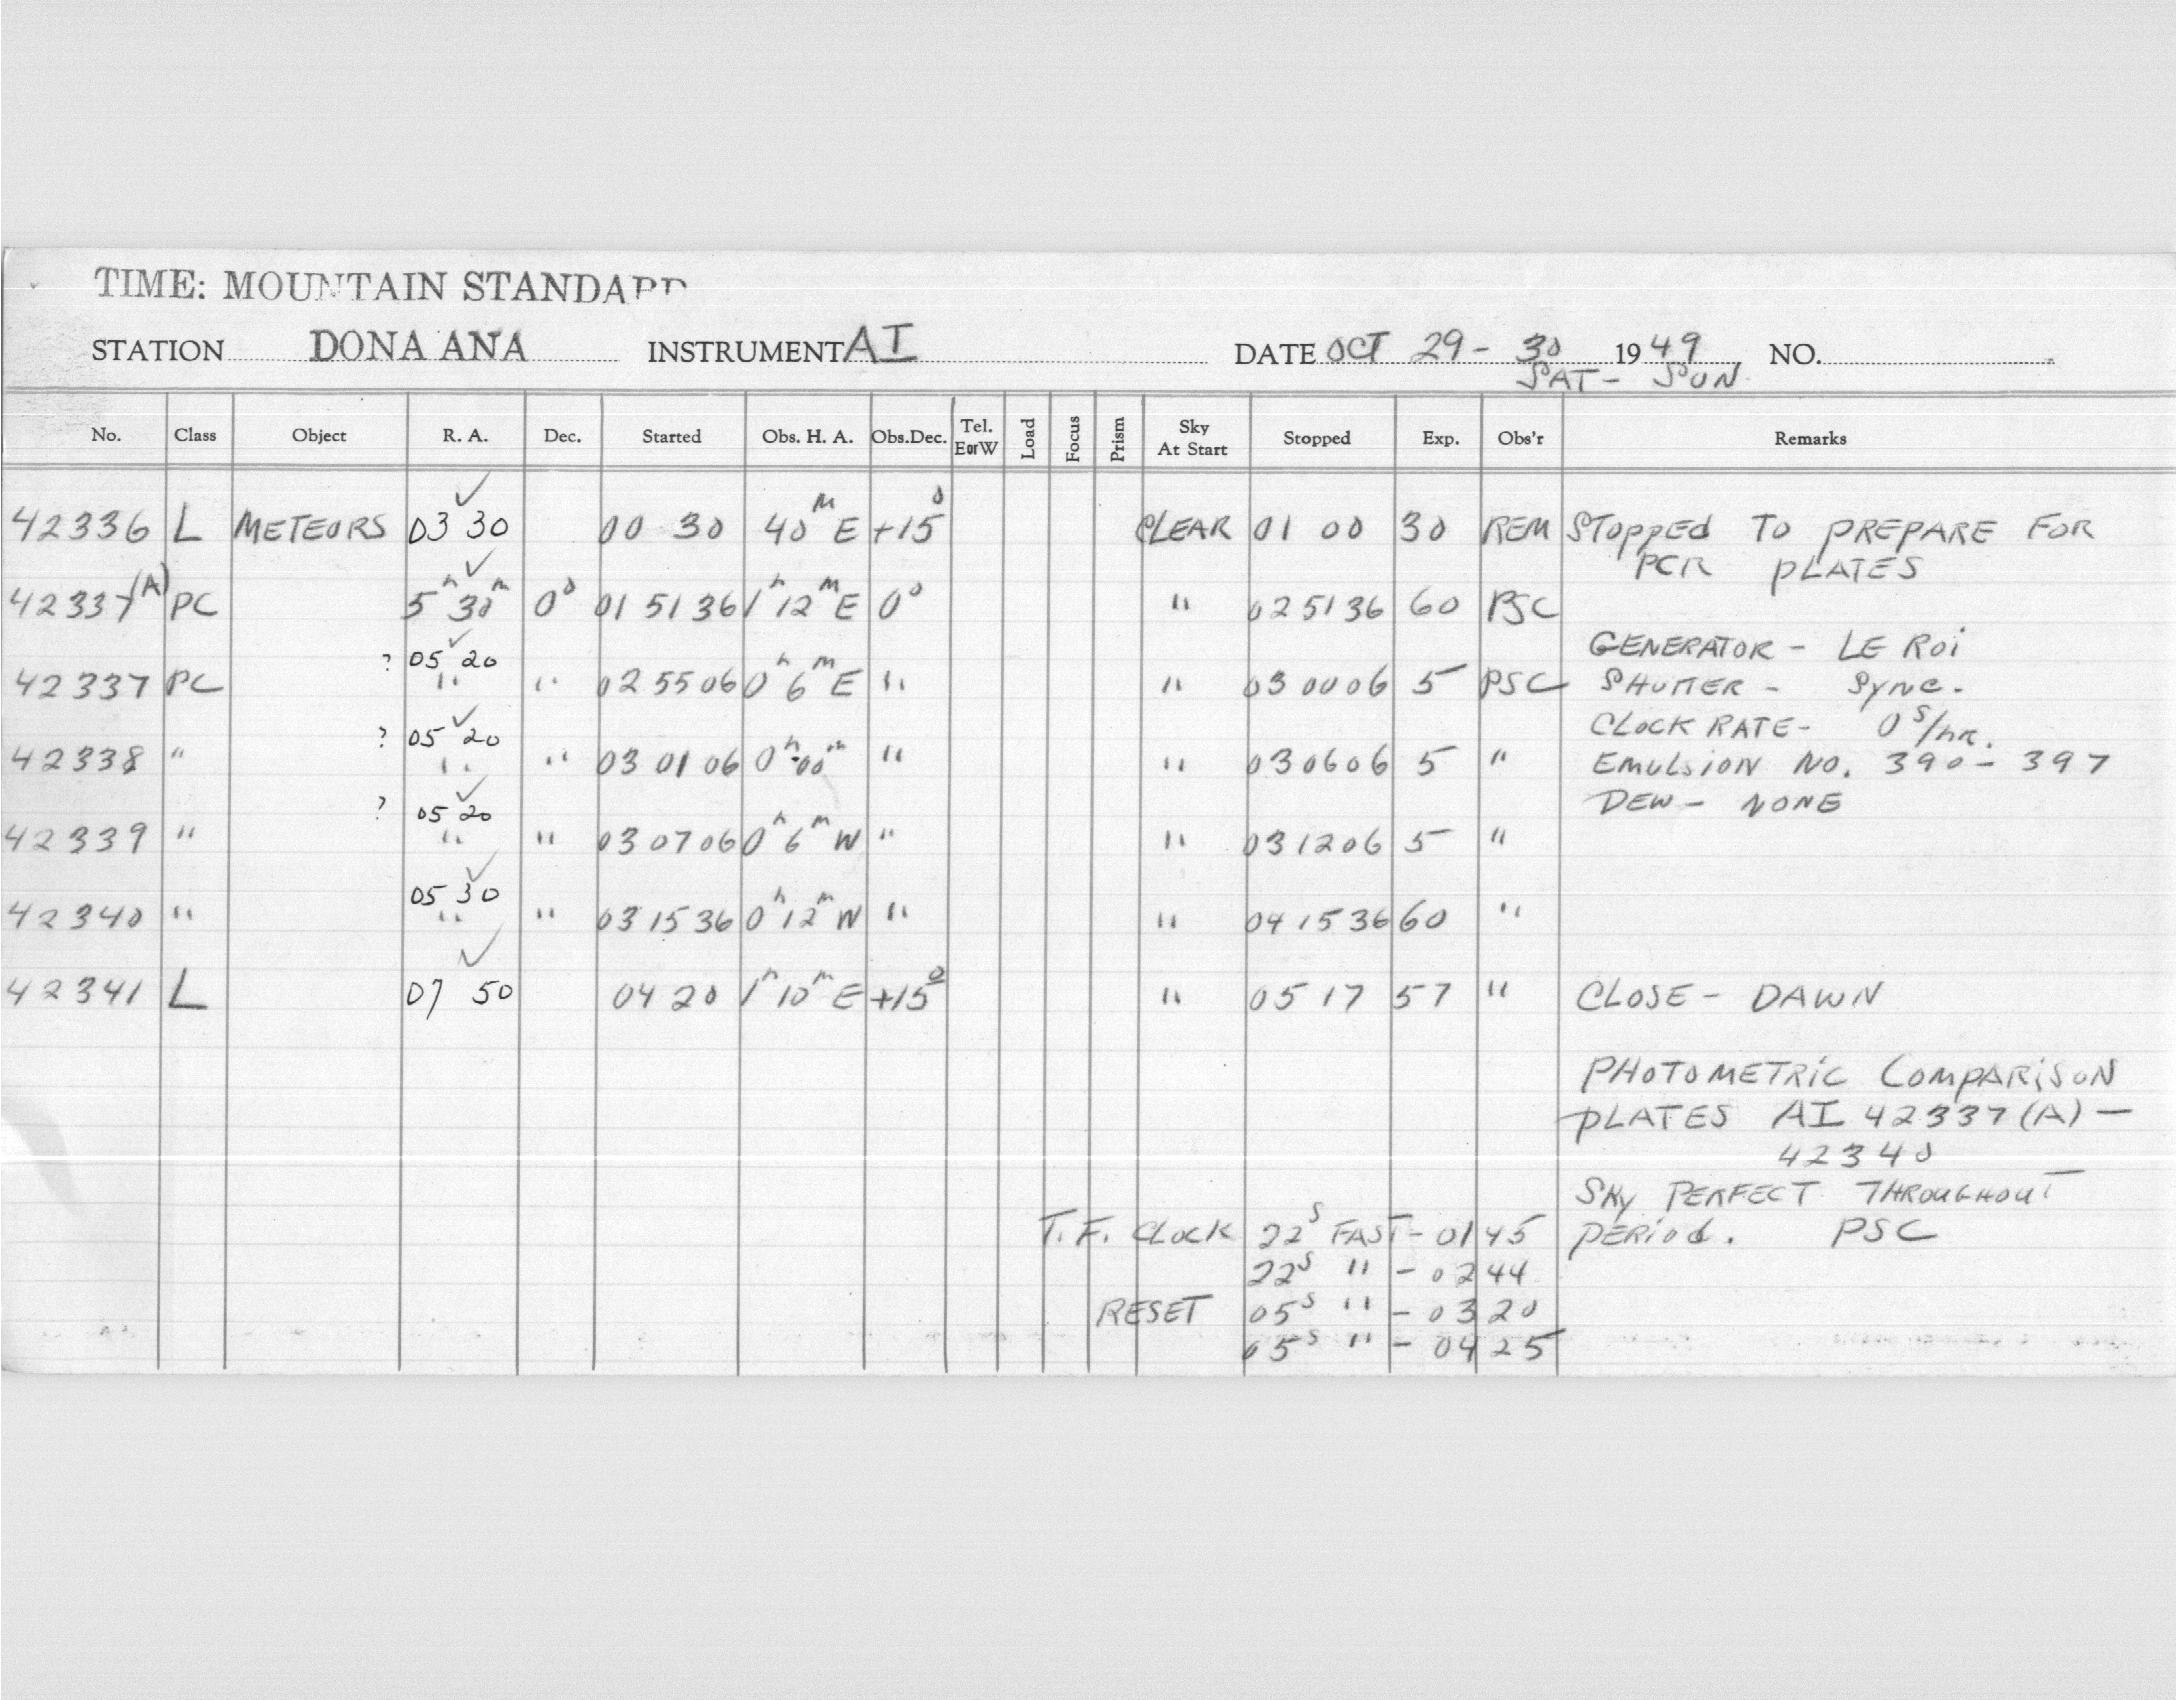 TIME: MOUNTAIN STANDARD
STATION DONA ANA INSTRUMENT AI DATE OCT 29 - 30 1949 NO.
SAT - SUN
No. Class Object R. A. Dec. Started Obs. H. A. Obs.Dec. Tel. EorW Load Focus Prism Sky At Start Stopped Exp. Obs'r Remarks
42336 L METEORS 03 30 00 30 40ᵐ E +15° CLEAR 01 00 30 REM STOPPED TO PREPARE FOR
PCR PLATES
42337(A) PC 5ʰ 30ᵐ 0° 01 51 36 1ʰ 12ᵐ E 0° " 02 51 36 60 PSC
GENERATOR - LE ROI
? 05 20
42337 PC " " 02 55 06 0ʰ 6ᵐ E " " 03 00 06 5 PSC SHUTTER - SYNC.
CLOCK RATE - 0ˢ/hr.
? 05 20
42338 " " " 03 01 06 0ʰ 00ᵐ " " 03 06 06 5 " EMULSION NO. 390 - 397
DEW - NONE
? 05 20
42339 " " " 03 07 06 0ʰ 6ᵐ W " " 03 12 06 5 "
05 30
42340 " " " 03 15 36 0ʰ 12ᵐ W " " 04 15 36 60 "
42341 L 07 50 04 20 1ʰ 10ᵐ E +15° " 05 17 57 " CLOSE - DAWN
PHOTOMETRIC COMPARISON
PLATES AI 42337(A) -
42340
SKY PERFECT THROUGHOUT
T. F. CLOCK 22ˢ FAST - 01 45 PERIOD. PSC
22ˢ " - 02 44
RESET 05ˢ " - 03 20
05ˢ " - 04 25